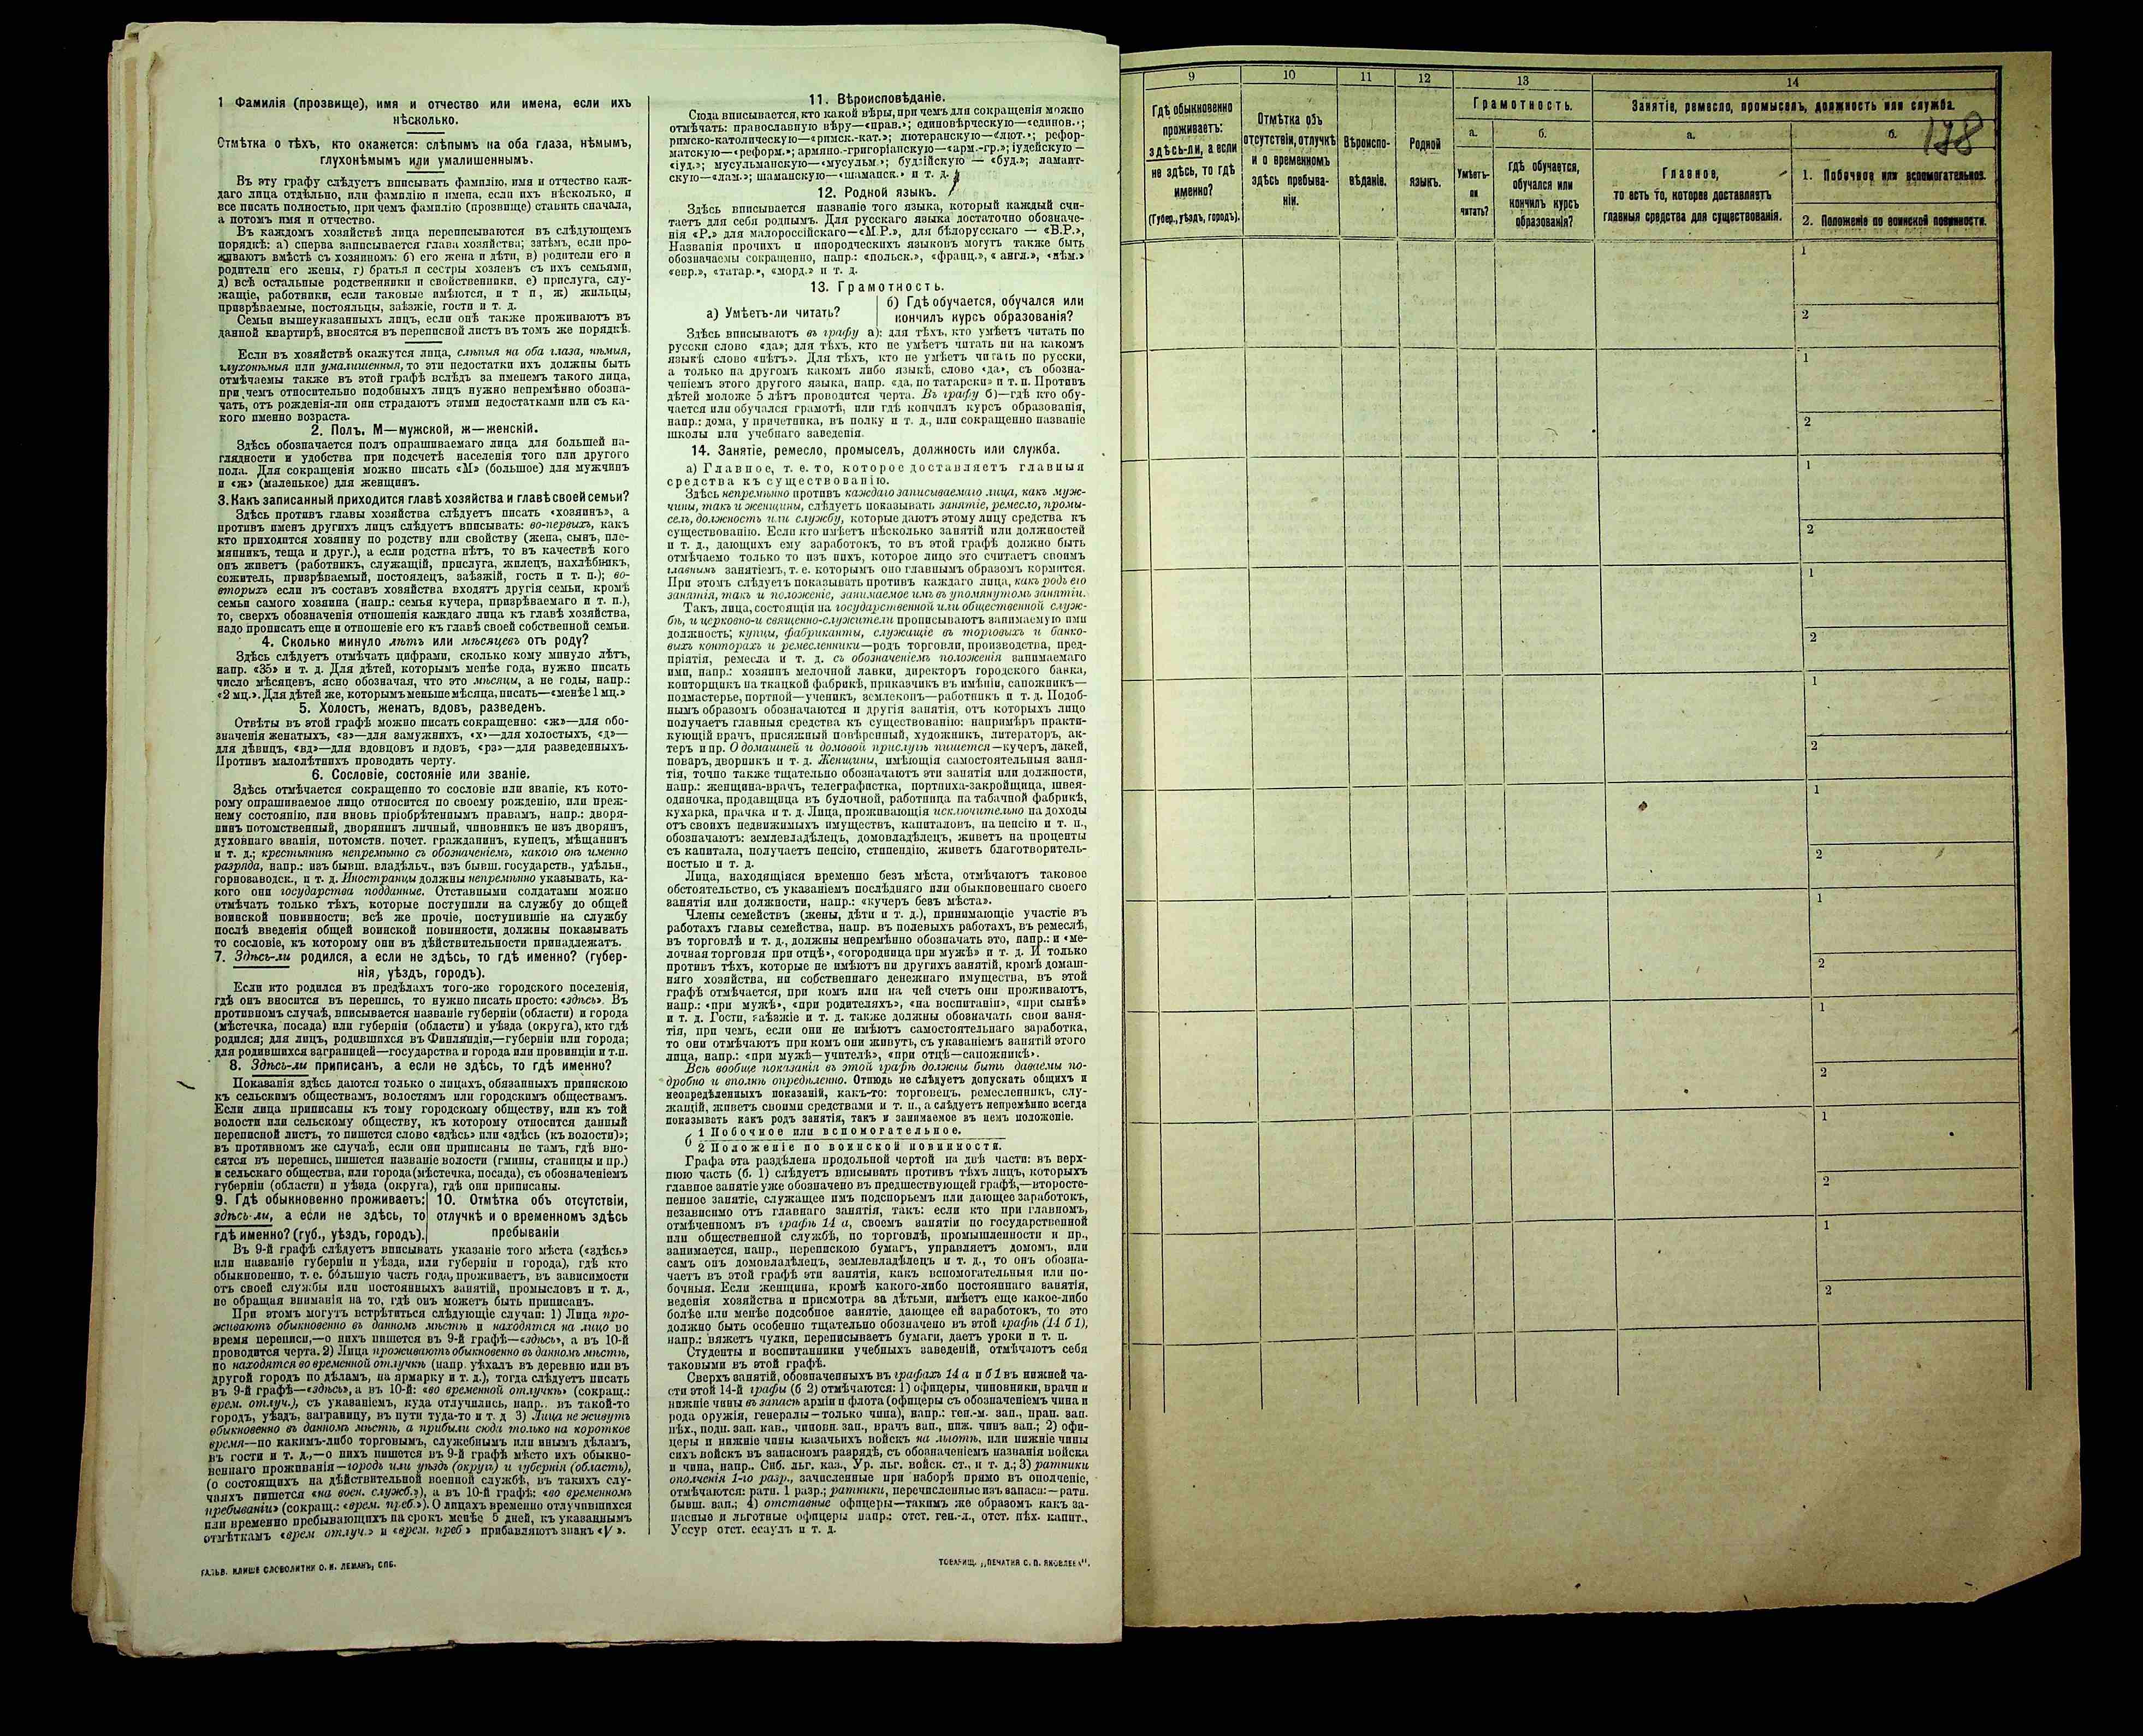 1 Фамилія (прозвище), имя и отчество или имена, если ихъ
нѣсколько.
Отмѣтка о тѣхъ, кто окажется: слѣпымъ на оба глаза, нѣмымъ,
глухонѣмымъ или умалишеннымъ.
Въ эту графу слѣдуетъ вписывать фамилію, имя и отчество каж-
даго лица отдѣльно, или фамилію и имена, если ихъ нѣсколько, и
все писать полностью, при чемъ фамилію (прозвище) ставить сначала,
а потомъ имя и отчество.
Въ каждомъ хозяйствѣ лица переписываются въ слѣдующемъ
порядкѣ: а) сперва записывается глава хозяйства; затѣмъ, если про-
живаютъ вмѣстѣ съ хозяиномъ: б) его жена и дѣти, в) родители его и
родители его жены, г) братья и сестры хозяевъ съ ихъ семьями,
д) всѣ остальные родственники и свойственники, е) прислуга, слу-
жащіе, работники, если таковые имѣются, и т п, ж) жильцы,
призрѣваемые, постояльцы, заѣзжіе, гости и т. д.
Семьи вышеуказанныхъ лицъ, если онѣ также проживаютъ въ
данной квартирѣ, вносятся въ переписной листъ въ томъ же порядкѣ.
Если въ хозяйствѣ окажутся лица, слѣпыя на оба глаза, нѣмыя,
глухонѣмыя или умалишенныя, то эти недостатки ихъ должны быть
отмѣчаемы также въ этой графѣ вслѣдъ за именемъ такого лица,
при чемъ относительно подобныхъ лицъ нужно непремѣнно обозна-
чать, отъ рожденія-ли они страдаютъ этими недостатками или съ ка-
кого именно возраста.
2. Полъ. М—мужской, ж—женскій.
Здѣсь обозначается полъ опрашиваемаго лица для большей на-
глядности и удобства при подсчетѣ населенія того или другого
пола. Для сокращенія можно писать «М» (большое) для мужчинъ
и «ж» (маленькое) для женщинъ.
3. Какъ записанный приходится главѣ хозяйства и главѣ своей семьи?
Здѣсь противъ главы хозяйства слѣдуетъ писать «хозяинъ», а
противъ именъ другихъ лицъ слѣдуетъ вписывать: во-первыхъ, какъ
кто приходится хозяину по родству или свойству (жена, сынъ, пле-
мянникъ, теща и друг.), а если родства нѣтъ, то въ качествѣ кого
онъ живетъ (работникъ, служащій, прислуга, жилецъ, нахлѣбникъ,
сожитель, призрѣваемый, постоялецъ, заѣзжій, гость и т. п.); во-
вторыхъ если въ составъ хозяйства входятъ другія семьи, кромѣ
семьи самого хозяина (напр.: семья кучера, призрѣваемаго и т. п.),
то, сверхъ обозначенія отношенія каждаго лица къ главѣ хозяйства,
надо прописать еще и отношеніе его къ главѣ своей собственной семьи.
4. Сколько минуло лѣтъ или мѣсяцевъ отъ роду?
Здѣсь слѣдуетъ отмѣчать цифрами, сколько кому минуло лѣтъ,
напр. «35» и т. д. Для дѣтей, которымъ менѣе года, нужно писать
число мѣсяцевъ, ясно обозначая, что это мѣсяцы, а не годы, напр.:
«2 мц.». Для дѣтей же, которымъ меньше мѣсяца, писать—«менѣе 1 мц.»
5. Холостъ, женатъ, вдовъ, разведенъ.
Отвѣты въ этой графѣ можно писать сокращенно: «ж»—для обо-
значенія женатыхъ, «з»—для замужнихъ, «х»—для холостыхъ, «д»—
для дѣвицъ, «вд»—для вдовцовъ и вдовъ, «рз»—для разведенныхъ.
Противъ малолѣтнихъ проводить черту.
6. Сословіе, состояніе или званіе.
Здѣсь отмѣчается сокращенно то сословіе или званіе, къ кото-
рому опрашиваемое лицо относится по своему рожденію, или преж-
нему состоянію, или вновь пріобрѣтеннымъ правамъ, напр.: дворя-
нинъ потомственный, дворянинъ личный, чиновникъ не изъ дворянъ,
духовнаго званія, потомств. почет. гражданинъ, купецъ, мѣщанинъ
и т. д.; крестьянинъ непремѣнно съ обозначеніемъ, какого онъ именно
разряда, напр.: изъ бывш. владѣльч., изъ бывш. государств., удѣльн.,
горнозаводск., и т. д. Иностранцы должны непремѣнно указывать, ка-
кого они государства подданные. Отставными солдатами можно
отмѣчать только тѣхъ, которые поступили на службу до общей
воинской повинности; всѣ же прочіе, поступившіе на службу
послѣ введенія общей воинской повинности, должны показывать
то сословіе, къ которому они въ дѣйствительности принадлежатъ.
7. Здѣсь-ли родился, а если не здѣсь, то гдѣ именно? (губер-
нія, уѣздъ, городъ).
Если кто родился въ предѣлахъ того-же городского поселенія,
гдѣ онъ вносится въ перепись, то нужно писать просто: «здѣсь». Въ
противномъ случаѣ, вписывается названіе губерніи (области) и города
(мѣстечка, посада) или губерніи (области) и уѣзда (округа), кто гдѣ
родился; для лицъ, родившихся въ Финляндіи,—губерніи или города;
для родившихся заграницей—государства и города или провинціи и т.п.
8. Здѣсь-ли приписанъ, а если не здѣсь, то гдѣ именно?
Показанія здѣсь даются только о лицахъ, обязанныхъ припискою
къ сельскимъ обществамъ, волостямъ или городскимъ обществамъ.
Если лица приписаны къ тому городскому обществу, или къ той
волости или сельскому обществу, къ которому относится данный
переписной листъ, то пишется слово «здѣсь» или «здѣсь (къ волости)»;
въ противномъ же случаѣ, если они приписаны не тамъ, гдѣ вно-
сятся въ перепись, пишется названіе волости (гмины, станицы и пр.)
и сельскаго общества, или города (мѣстечка, посада), съ обозначеніемъ
губерніи (области) и уѣзда (округа), гдѣ они приписаны.
9. Гдѣ обыкновенно проживаетъ:
здѣсь-ли, а если не здѣсь, то
гдѣ именно? (губ., уѣздъ, городъ).
10. Отмѣтка объ отсутствіи,
отлучкѣ и о временномъ здѣсь
пребываніи
Въ 9-й графѣ слѣдуетъ вписывать указаніе того мѣста («здѣсь»
или названіе губерніи и уѣзда, или губерніи и города), гдѣ кто
обыкновенно, т. е. большую часть года, проживаетъ, въ зависимости
отъ своей службы или постоянныхъ занятій, промысловъ и т. д.,
не обращая вниманія на то, гдѣ онъ можетъ быть приписанъ.
При этомъ могутъ встрѣтиться слѣдующіе случаи: 1) Лица про-
живаютъ обыкновенно въ данномъ мѣстѣ и находятся на лицо во
время переписи,—о нихъ пишется въ 9-й графѣ—«здѣсь», а въ 10-й
проводится черта. 2) Лица проживаютъ обыкновенно въ данномъ мѣстѣ,
но находятся во временной отлучкѣ (напр. уѣхалъ въ деревню или въ
другой городъ по дѣламъ, на ярмарку и т. д.), тогда слѣдуетъ писать
въ 9-й графѣ—«здѣсь», а въ 10-й: «во временной отлучкѣ» (сокращ.:
врем. отлуч.), съ указаніемъ, куда отлучились, напр.. въ такой-то
городъ, уѣздъ, заграницу, въ пути туда-то и т. д 3) Лица не живутъ
обыкновенно въ данномъ мѣстѣ, а прибыли сюда только на короткое
время—по какимъ-либо торговымъ, служебнымъ или инымъ дѣламъ,
въ гости и т. д.,—о нихъ пишется въ 9-й графѣ мѣсто ихъ обыкно-
веннаго проживанія—городъ или уѣздъ (округъ) и губернія (область),
(о состоящихъ на дѣйствительной военной службѣ, въ такихъ слу-
чаяхъ пишется «на воен. служб.»), а въ 10-й графѣ: «во временномъ
пребываніи» (сокращ.: «врем. преб.»). О лицахъ временно отлучившихся
или временно пребывающихъ на срокъ менѣе 5 дней, къ указаннымъ
отмѣткамъ «врем отлуч.» и «врем. преб» прибавляютъ знакъ «V».
ГАЛЬВ. КЛИШЕ СЛОВОЛИТНИ О. И. ЛЕМАНЪ, СПБ.
11. Вѣроисповѣданіе.
Сюда вписывается, кто какой вѣры, при чемъ для сокращенія можно
отмѣчать: православную вѣру—«прав.»; единовѣрческую—«единов.»;
римско-католическую—«римск.-кат.»; лютеранскую—«лют.»; рефор-
матскую—«реформ.»; армяно.-григоріанскую—«арм.-гр.»; іудейскую—
«іуд.»; мусульманскую—«мусульм.»; будзійскую — «буд.»; ламаит-
скую—«лам.»; шаманскую—«шаманск.» и т. д.
12. Родной языкъ.
Здѣсь вписывается названіе того языка, который каждый счи-
таетъ для себя роднымъ. Для русскаго языка достаточно обозначе-
нія «Р.» для малороссійскаго—«М.Р.», для бѣлорусскаго — «Б.Р.»,
Названія прочихъ и инородческихъ языковъ могутъ также быть
обозначаемы сокращенно, напр.: «польск.», «франц.», « англ.», «нѣм.»
«евр.», «татар.», «морд.» и т. д.
13. Грамотность.
а) Умѣетъ-ли читать?
б) Гдѣ обучается, обучался или
кончилъ курсъ образованія?
Здѣсь вписываютъ въ графу а): для тѣхъ, кто умѣетъ читать по
русски слово «да»; для тѣхъ, кто не умѣетъ читать ни на какомъ
языкѣ слово «нѣтъ». Для тѣхъ, кто не умѣетъ читать по русски,
а только на другомъ какомъ либо языкѣ, слово «да», съ обозна-
ченіемъ этого другого языка, напр. «да, по татарски» и т. п. Противъ
дѣтей моложе 5 лѣтъ проводится черта. Въ графу б)—гдѣ кто обу-
чается или обучался грамотѣ, или гдѣ кончилъ курсъ образованія,
напр.: дома, у причетника, въ полку и т. д., или сокращенно названіе
школы или учебнаго заведенія.
14. Занятіе, ремесло, промыселъ, должность или служба.
а) Главное, т. е. то, которое доставляетъ главныя
средства къ существованію.
Здѣсь непремѣнно противъ каждаго записываемаго лица, какъ муж-
чины, такъ и женщины, слѣдуетъ показывать занятіе, ремесло, промы-
селъ, должность или службу, которые даютъ этому лицу средства къ
существованію. Если кто имѣетъ нѣсколько занятій или должностей
и т. д., дающихъ ему заработокъ, то въ этой графѣ должно быть
отмѣчаемо только то изъ нихъ, которое лицо это считаетъ своимъ
главнымъ занятіемъ, т. е. которымъ оно главнымъ образомъ кормится.
При этомъ слѣдуетъ показывать противъ каждаго лица, какъ родъ его
занятія, такъ и положеніе, занимаемое имъ въ упомянутомъ занятіи.
Такъ, лица, состоящія на государственной или общественной служ-
бѣ, и церковно-и священно-служители прописываютъ занимаемую ими
должность; купцы, фабриканты, служащіе въ торговыхъ и банко-
выхъ конторахъ и ремесленники—родъ торговли, производства, пред-
пріятія, ремесла и т. д. съ обозначеніемъ положенія занимаемаго
ими, напр.: хозяинъ мелочной лавки, директоръ городского банка,
конторщикъ на ткацкой фабрикѣ, приказчикъ въ имѣніи, сапожникъ—
подмастерье, портной—ученикъ, землекопъ—работникъ и т. д. Подоб-
нымъ образомъ обозначаются и другія занятія, отъ которыхъ лицо
получаетъ главныя средства къ существованію: напримѣръ практи-
кующій врачъ, присяжный повѣренный, художникъ, литераторъ, ак-
теръ и пр. О домашней и домовой прислугѣ пишется—кучеръ, лакей,
поваръ, дворникъ и т. д. Женщины, имѣющія самостоятельныя заня-
тія, точно также тщательно обозначаютъ эти занятія или должности,
напр.: женщина-врачъ, телеграфистка, портниха-закройщица, швея-
одиночка, продавщица въ булочной, работница на табачной фабрикѣ,
кухарка, прачка и т. д. Лица, проживающія исключительно на доходы
отъ своихъ недвижимыхъ имуществъ, капиталовъ, на пенсію и т. п.,
обозначаютъ: землевладѣлецъ, домовладѣлецъ, живетъ на проценты
съ капитала, получаетъ пенсію, стипендію, живетъ благотворитель-
ностью и т. д.
Лица, находящіяся временно безъ мѣста, отмѣчаютъ таковое
обстоятельство, съ указаніемъ послѣдняго или обыкновеннаго своего
занятія или должности, напр.: «кучеръ безъ мѣста».
Члены семействъ (жены, дѣти и т. д.), принимающіе участіе въ
работахъ главы семейства, напр. въ полевыхъ работахъ, въ ремеслѣ,
въ торговлѣ и т. д., должны непремѣнно обозначать это, напр.: и «ме-
лочная торговля при отцѣ», «огородница при мужѣ» и т. д. И только
противъ тѣхъ, которые не имѣютъ ни другихъ занятій, кромѣ домаш-
няго хозяйства, ни собственнаго денежнаго имущества, въ этой
графѣ отмѣчается, при комъ или на чей счетъ они проживаютъ,
напр.: «при мужѣ», «при родителяхъ», «на воспитаніи», «при сынѣ»
и т. д. Гости, заѣзжіе и т. д. также должны обозначать свои заня-
тія, при чемъ, если они не имѣютъ самостоятельнаго заработка,
то они отмѣчаютъ при комъ они живутъ, съ указаніемъ занятій этого
лица, напр.: «при мужѣ—учителѣ», «при отцѣ—сапожникѣ».
Всѣ вообще показанія въ этой графѣ должны быть даваемы по-
дробно и вполнѣ опредѣленно. Отнюдь не слѣдуетъ допускать общихъ и
неопредѣленныхъ показаній, какъ-то: торговецъ, ремесленникъ, слу-
жащій, живетъ своими средствами и т. п., а слѣдуетъ непремѣнно всегда
показывать какъ родъ занятія, такъ и занимаемое въ немъ положеніе.
б
1 Побочное или вспомогательное.
2 Положеніе по воинской повинности.
Графа эта раздѣлена продольной чертой на двѣ части: въ верх-
нюю часть (б. 1) слѣдуетъ вписывать противъ тѣхъ лицъ, которыхъ
главное занятіе уже обозначено въ предшествующей графѣ,—второсте-
пенное занятіе, служащее имъ подспорьемъ или дающее заработокъ,
независимо отъ главнаго занятія, такъ: если кто при главномъ,
отмѣченномъ въ графѣ 14 а, своемъ занятіи по государственной
или общественной службѣ, по торговлѣ, промышленности и пр.,
занимается, напр., перепискою бумагъ, управляетъ домомъ, или
самъ онъ домовладѣлецъ, землевладѣлецъ и т. д., то онъ обозна-
чаетъ въ этой графѣ эти занятія, какъ вспомогательныя или по-
бочныя. Если женщина, кромѣ какого-либо постояннаго занятія,
веденія хозяйства и присмотра за дѣтьми, имѣетъ еще какое-либо
болѣе или менѣе подсобное занятіе, дающее ей заработокъ, то это
должно быть особенно тщательно обозначено въ этой графѣ (14 б 1),
напр.: вяжетъ чулки, переписываетъ бумаги, даетъ уроки и т. п.
Студенты и воспитанники учебныхъ заведеній, отмѣчаютъ себя
таковыми въ этой графѣ.
Сверхъ занятій, обозначенныхъ въ графахъ 14 а и б 1 въ нижней ча-
сти этой 14-й графы (б 2) отмѣчаются: 1) офицеры, чиновники, врачи и
нижніе чины въ запасѣ арміи и флота (офицеры съ обозначеніемъ чина и
рода оружія, генералы—только чина), напр.: ген.-м. зап., прап. зап.
пѣх., подп. зап. кав., чиновн. зап., врачъ зап., ниж. чинъ зап.; 2) офи-
церы и нижніе чины казачьихъ войскъ на льготѣ, или нижніе чины
сихъ войскъ въ запасномъ разрядѣ, съ обозначеніемъ названія войска
и чина, напр.. Сиб. льг. каз., Ур. льг. войск. ст., и т. д.; 3) ратники
ополченія 1-го разр., зачисленные при наборѣ прямо въ ополченіе,
отмѣчаются: ратн. 1 разр.; ратники, перечисленные изъ запаса:—ратн.
бывш. зап.; 4) отставные офицеры—такимъ же образомъ какъ за-
пасные и льготные офицеры напр.: отст. ген.-л., отст. пѣх. капит.,
Уссур отст. есаулъ и т. д.
ТОВАРИЩ. „ПЕЧАТНЯ С. П. ЯКОВЛЕВА".
9
10
11
12
13
14
Гдѣ обыкновенно
проживаетъ:
здѣсь-ли, а если
не здѣсь, то гдѣ
именно?
(Губер., уѣздъ, городъ).
Отмѣтка объ
отсутствіи, отлучкѣ
и о временномъ
здѣсь пребыва-
ніи.
Вѣроиспо-
вѣданіе.
Родной
языкъ.
Грамотность.
а.
Умѣетъ-
ли
читать?
б.
Гдѣ обучается,
обучался или
кончилъ курсъ
образованія?
Занятіе, ремесло, промыселъ, должность или служба.
а.
Главное,
то есть то, которое доставляетъ
главныя средства для существованія.
б.
178
1. Побочное или вспомогательное.
2. Положеніе по воинской повинности.
1
2
1
2
1
2
1
2
1
2
1
2
1
2
1
2
1
2
1
2